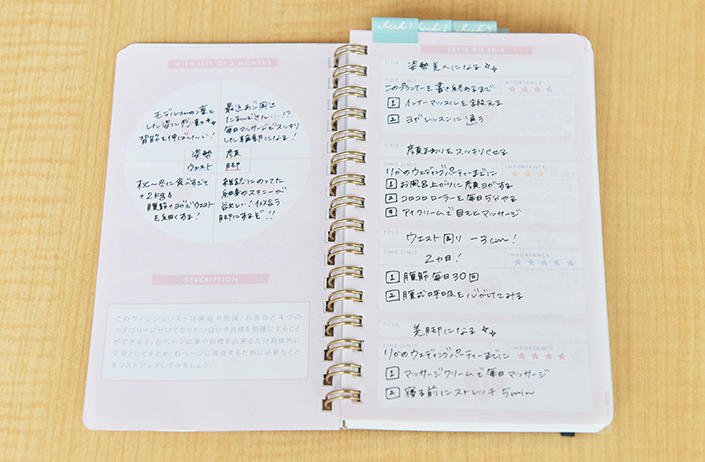 WISH LIST OF 2 MONTHS
モデルさんの凛と
した姿に感動
背筋を伸ばしたい！
最近あご周り
毎日マッサージでスッキリ
した輪郭になる！
姿勢
顔
ウエスト
脚
秋〜冬に食べすぎて
+2kg
腹筋+ヨガでウエスト
を細くする！
雑誌にのってた
細身のスキニーが
欲しい！似合う
脚にするぞ!!
DESCRIPTION
このウィッシュリストは美容や勉強、お金など4つの
カテゴリーに分けてなりたい自分や目標を明確にすること
ができます。左ページに夢や目標を出来るだけ具体的に
文章としてまとめ、右ページに達成するために必要なこと
をリストアップしてみましょう。
check!
check!
check!
LET'S DO THIS
TITLE
姿勢美人になる
TIME LIMIT
このプランナーを書き終えるまで
IMPORTANCE
1 インナーマッスルを鍛える
2 ヨガレッスンに通う
TITLE
顔まわりをスッキリさせる
TIME LIMIT
りかのウェディングパーティーまでに
IMPORTANCE
1 お風呂上がりに顔ヨガする
2 コロコロローラーを毎日5分やる
3 アイクリームで目元とマッサージ
TITLE
ウエスト周り -3cm!
TIME LIMIT
2ヵ月！
IMPORTANCE
1 腹筋 毎日30回
2 腹式呼吸を心がけてみる
TITLE
美脚になる
TIME LIMIT
りかのウェディングパーティーまでに
IMPORTANCE
1 マッサージクリームで毎日マッサージ
2 寝る前にストレッチ 5min